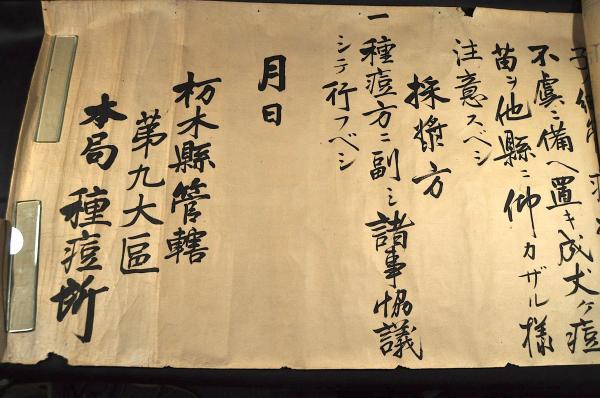 不虞ニ備ヘ置キ成丈ケ痘
苗ヲ他縣ニ仰カザル様
注意スベシ
採漿方
一種痘方ニ副ミ諸事協議
シテ行フベシ
月日
栃木縣管轄
第九大區
本局種痘所